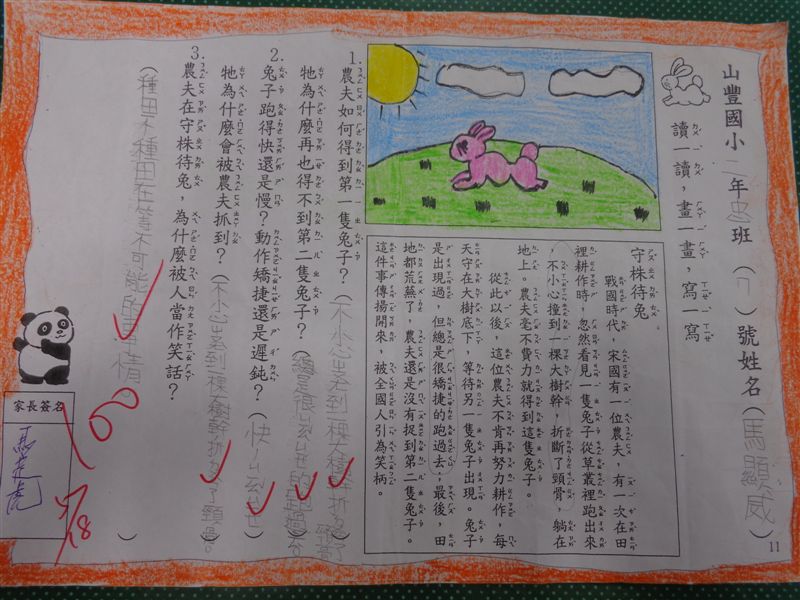 山豐國小二年忠班(7)號姓名(馬顯威)
讀一讀，畫一畫，寫一寫
守株待兔
戰國時代，宋國有一位農夫，有一次在田
裡耕作時，忽然看見一隻兔子從草叢裡跑出來
，不小心撞到一棵大樹幹，折斷了頸骨，躺在
地上。農夫毫不費力就得到這隻兔子。
從此以後，這位農夫不肯再努力耕作，每
天守在大樹底下，等待另一隻兔子出現。兔子
是出現過，但總是很矯捷的跑過去；最後，田
地都荒蕪了，農夫還是沒有捉到第二隻兔子。
這件事傳揚開來，被全國人引為笑柄。
1.農夫如何得到第一隻兔子？(不小心撞到一棵大樹幹折斷了頸骨)
牠為什麼再也得不到第二隻兔子？(總是很ㄐㄧㄠˇㄐㄧㄝˊ的跑過去)
2.兔子跑得快還是慢？動作矯捷還是遲鈍？(快)
牠為什麼會被農夫抓到？(不小心撞到一棵樹幹折斷了頸骨。)
3.農夫在守株待兔，為什麼被人當作笑話？
(種田不種田在等不可能的事情。)
家長簽名
100
11